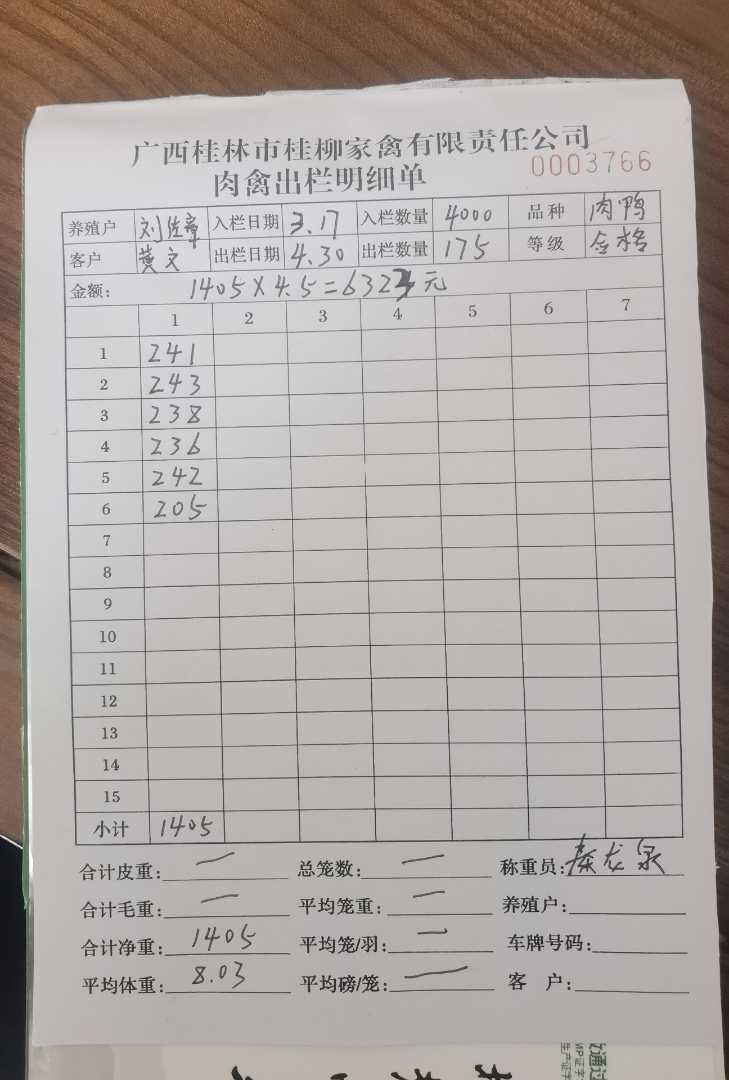 广西桂林市桂柳家禽有限责任公司
0003766
肉禽出栏明细单
养殖户 刘佐章 入栏日期 3.17 入栏数量 4000 品种 肉鸭
客户 黄文 出栏日期 4.30 出栏数量 175 等级 合格
金额: 1405×4.5=6323元
1 2 3 4 5 6 7
1 241
2 243
3 238
4 236
5 242
6 205
7
8
9
10
11
12
13
14
15
小计 1405
合计皮重: 一 总笼数: 一 称重员: 秦龙泉
合计毛重: 一 平均笼重: 一 养殖户:
合计净重: 1405 平均笼/羽: 一 车牌号码:
平均体重: 8.03 平均磅/笼: 一 客 户: